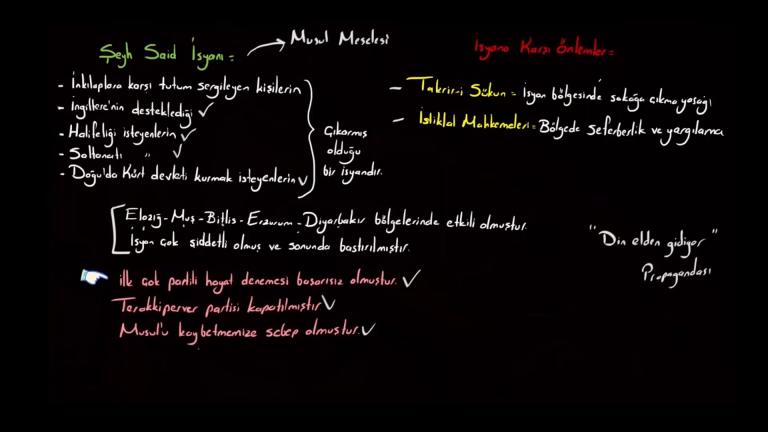 Şeyh Said İsyanı =
Musul Meselesi
- İnkılaplara karşı tutum sergileyen kişilerin
- İngiltere'nin desteklediği ✓
- Halifeliği isteyenlerin ✓
- Saltanatı " ✓
- Doğu'da Kürt devleti kurmak isteyenlerin ✓
Çıkarmış
olduğu
bir isyandır.
İsyana Karşı Önlemler =
- Takrir-i Sükun = İsyan bölgesinde sokağa çıkma yasağı
- İstiklal Mahkemeleri = Bölgede seferberlik ve yargılama
Elazığ - Muş - Bitlis - Erzurum - Diyarbakır bölgelerinde etkili olmuştur.
İsyan çok şiddetli olmuş ve sonunda bastırılmıştır.
"Din elden gidiyor"
Propagandası
İlk çok partili hayat denemesi başarısız olmuştur. ✓
Terakkiperver partisi kapatılmıştır ✓
Musul'u kaybetmemize sebep olmuştur. ✓